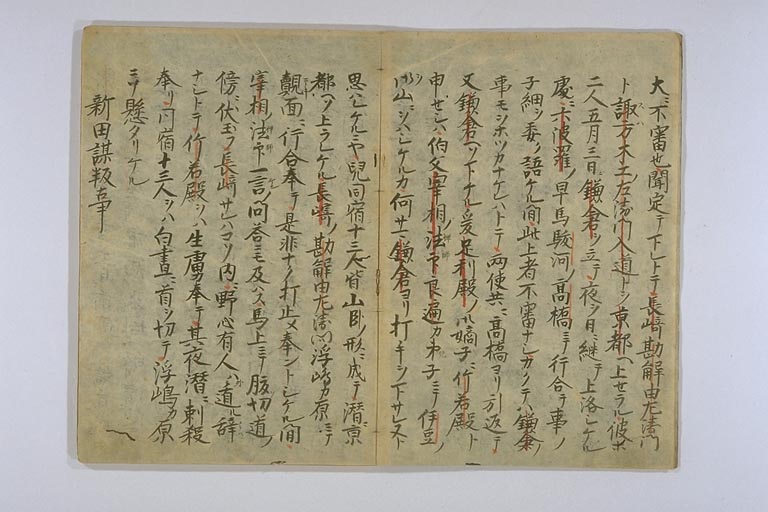 大ニ不審也聞定テ下レトテ長崎勘解由左衛門
ト諏方木工左衛門入道トヲ京都ヘ上セラル彼ホ
二人五月三日鎌倉ヲ立テ夜ヲ日ニ継テ上洛シケル
處ニ六波羅ノ早馬駿河ノ高橋ニテ行合テ事ノ
子細ヲ委ク語ケル間此上者不審ナシカクテハ鎌倉ノ
事モヲホツカナケレハトテ両使共ニ高橋ヨリ引返テ
又鎌倉ヘソ下ケル爰足利殿ノ御嫡子ニ竹若殿ト
申セシハ伯父宰相法印良遍カ弟子ニテ伊豆ノ
御山ニヲハシケルカ何サマ鎌倉ヨリ打手ヲシ下サレスト
思ハレケルニヤ兒同宿十三人皆山臥ノ形ニ成テ潜ニ京
都ヘソ上ラレケル長崎ノ勘解由左衛門浮嶋カ原ニテ
覿面ニ行合奉テ是非ナク打止メ奉ントシケル間
宰相法印一言ノ問答ニモ及ハス馬上ニテ腹切道ノ
傍ニ伏玉フ長崎サレハコソ内ニ野心有人ハ遁ルニ辞
ナシトテ竹若殿ヲハ生虜奉テ其夜潜ニ刺殺
奉リ同宿十三人ヲハ白晝ニ首ヲ切テ浮嶋カ原
ニソ懸タリケル
新田謀叛事